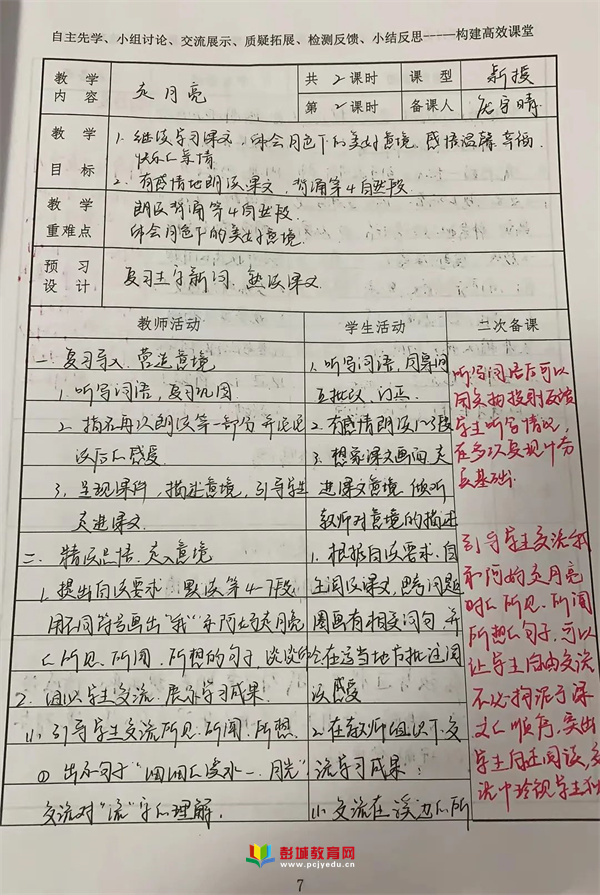 自主先学、小组讨论、交流展示、质疑拓展、检测反馈、小结反思-----构建高效课堂
教学内容 走月亮 共2课时 课型 新授
第2课时 备课人
教学目标
1. 继续学习课文，体会月色下的美好意境，感悟温馨、幸福、
快乐的亲情
2. 有感情地朗读课文，背诵第4自然段
教学重难点
朗读背诵第4自然段
体会月色下的美好意境.
预习设计 复习生字新词、熟读课文
教师活动 学生活动 二次备课
一、复习导入、营造意境
1. 听写词语，复习巩固
2. 指名再次朗读第一部分并
读后的感受
3. 呈现课件，描述意境，引导学生
走进课文
二、精读品悟、走入意境
1. 提出自读要求：默读第4-7段
用不同符号画出“我”和阿妈走月亮
的所见、所闻、所想的句子，谈谈
2. 组织学生交流、展示学习成果
(1) 引导学生交流所见、所闻、所想
① 出示句子“细细的溪水…月光”
交流对“流”字的理解.
1. 听写词语，同桌间
互批改、订正
2. 有感情朗读1-3段
3. 想象课文画面，走
进课文意境，倾听
教师对意境的描述
1. 根据自读要求，自
主阅读课文，思考问题
圈画有相关词句，并
在适当地方批注阅
读感受
2. 在教师组织下交
流学习成果：
(1) 交流在溪边的所
听写词语后可以
用实物投影反馈
学生听写情况，
在多次复现中夯
实基础.
引导学生交流我
和阿妈走月亮
时的所见、所闻
所想的句子，可以
让学生自由交流
不必拘泥于课
文的顺序，突出
学生自主阅读，交
流中珍视学生独
彭城教育网
www.pcjyedu.cn
7